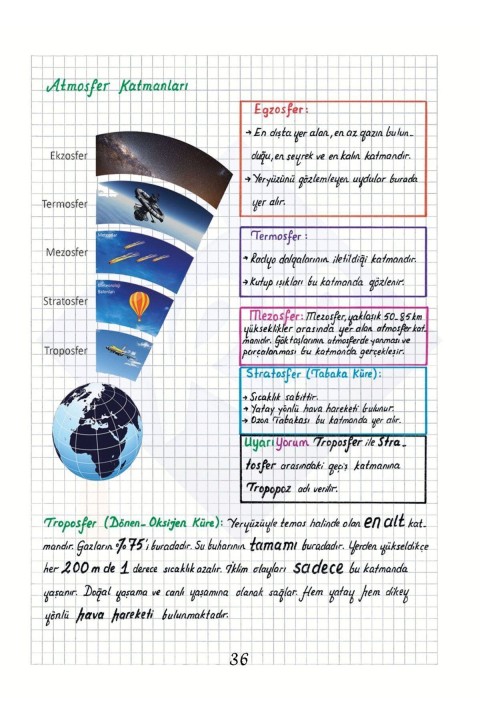 Atmosfer Katmanları
Ekzosfer
Termosfer
Mezosfer
Stratosfer
Troposfer
Egzosfer:
→ En dışta yer alan, en az gazın bulun_
duğu, en seyrek ve en kalın katmandır.
→ Yeryüzünü gözlemleyen uydular burada
yer alır.
Termosfer:
→ Radyo dalgalarının iletildiği katmandır.
→ Kutup ışıkları bu katmanda gözlenir.
Mezosfer: Mezosfer, yaklaşık 50_85 km
yükseklikler arasında yer alan atmosfer kat_
manıdır. Göktaşlarının atmosferde yanması ve
parçalanması bu katmanda gerçekleşir.
Stratosfer (Tabaka Küre):
→ Sıcaklık sabittir.
→ Yatay yönlü hava hareketi bulunur.
→ Ozon Tabakası bu katmanda yer alır.
Uyarı Yorum Troposfer ile Stra_
tosfer arasındaki geçiş katmanına
Tropopoz adı verilir.
Troposfer (Dönen_Oksijen Küre): Yeryüzüyle temas halinde olan en alt kat_
mandır. Gazların %75'i buradadır. Su buharının tamamı buradadır. Yerden yükseldikçe
her 200 m de 1 derece sıcaklık azalır. İklim olayları sadece bu katmanda
yaşanır. Doğal yaşama ve canlı yaşamına olanak sağlar. Hem yatay hem dikey
yönlü hava hareketi bulunmaktadır.
36